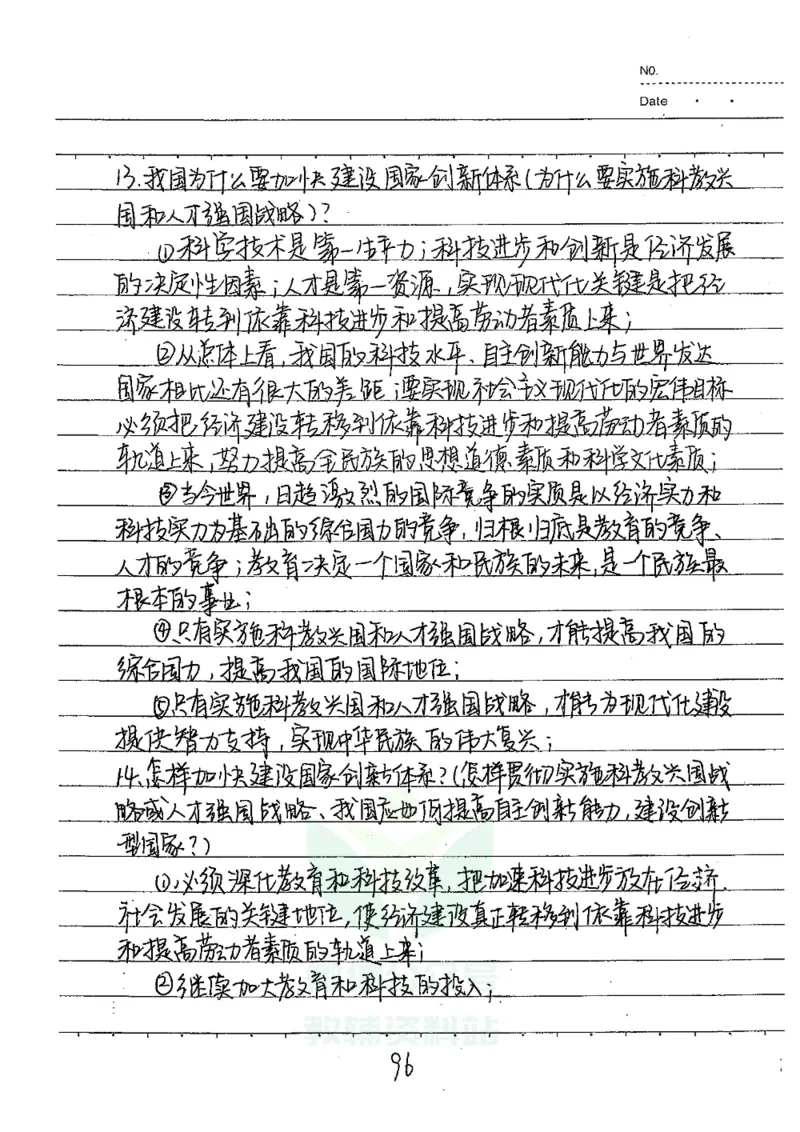 NO.
Date
13.我国为什么要加快建设国家创新体系(为什么要实施科教兴
国和人才强国战略)?
①科学技术是第一生产力;科技进步和创新是经济发展
的决定性因素;人才是第一资源,实现现代化关键是把经
济建设转到依靠科技进步和提高劳动者素质上来;
②从总体上看,我国的科技水平、自主创新能力与世界发达
国家相比还有很大的差距;要实现社会主义现代化的宏伟目标
必须把经济建设转移到依靠科技进步和提高劳动者素质的
轨道上来,努力提高全民族的思想道德素质和科学文化素质;
③当今世界,日趋激烈的国际竞争的实质是以经济实力和
科技实力为基础的综合国力的竞争,归根归底是教育的竞争、
人才的竞争;教育决定一个国家和民族的未来,是一个民族最
根本的事业;
④只有实施科教兴国和人才强国战略,才能提高我国的
综合国力,提高我国的国际地位;
⑤只有实施科教兴国和人才强国战略,才能为现代化建设
提供智力支持,实现中华民族的伟大复兴;
14.怎样加快建设国家创新体系?(怎样贯彻实施科教兴国战
略或人才强国战略、我国应如何提高自主创新能力,建设创新
型国家?)
①必须深化教育和科技改革,把加速科技进步放在经济、
社会发展的关键地位,使经济建设真正转移到依靠科技进步
和提高劳动者素质的轨道上来;
②继续加大教育和科技的投入;
教辅资料站
96